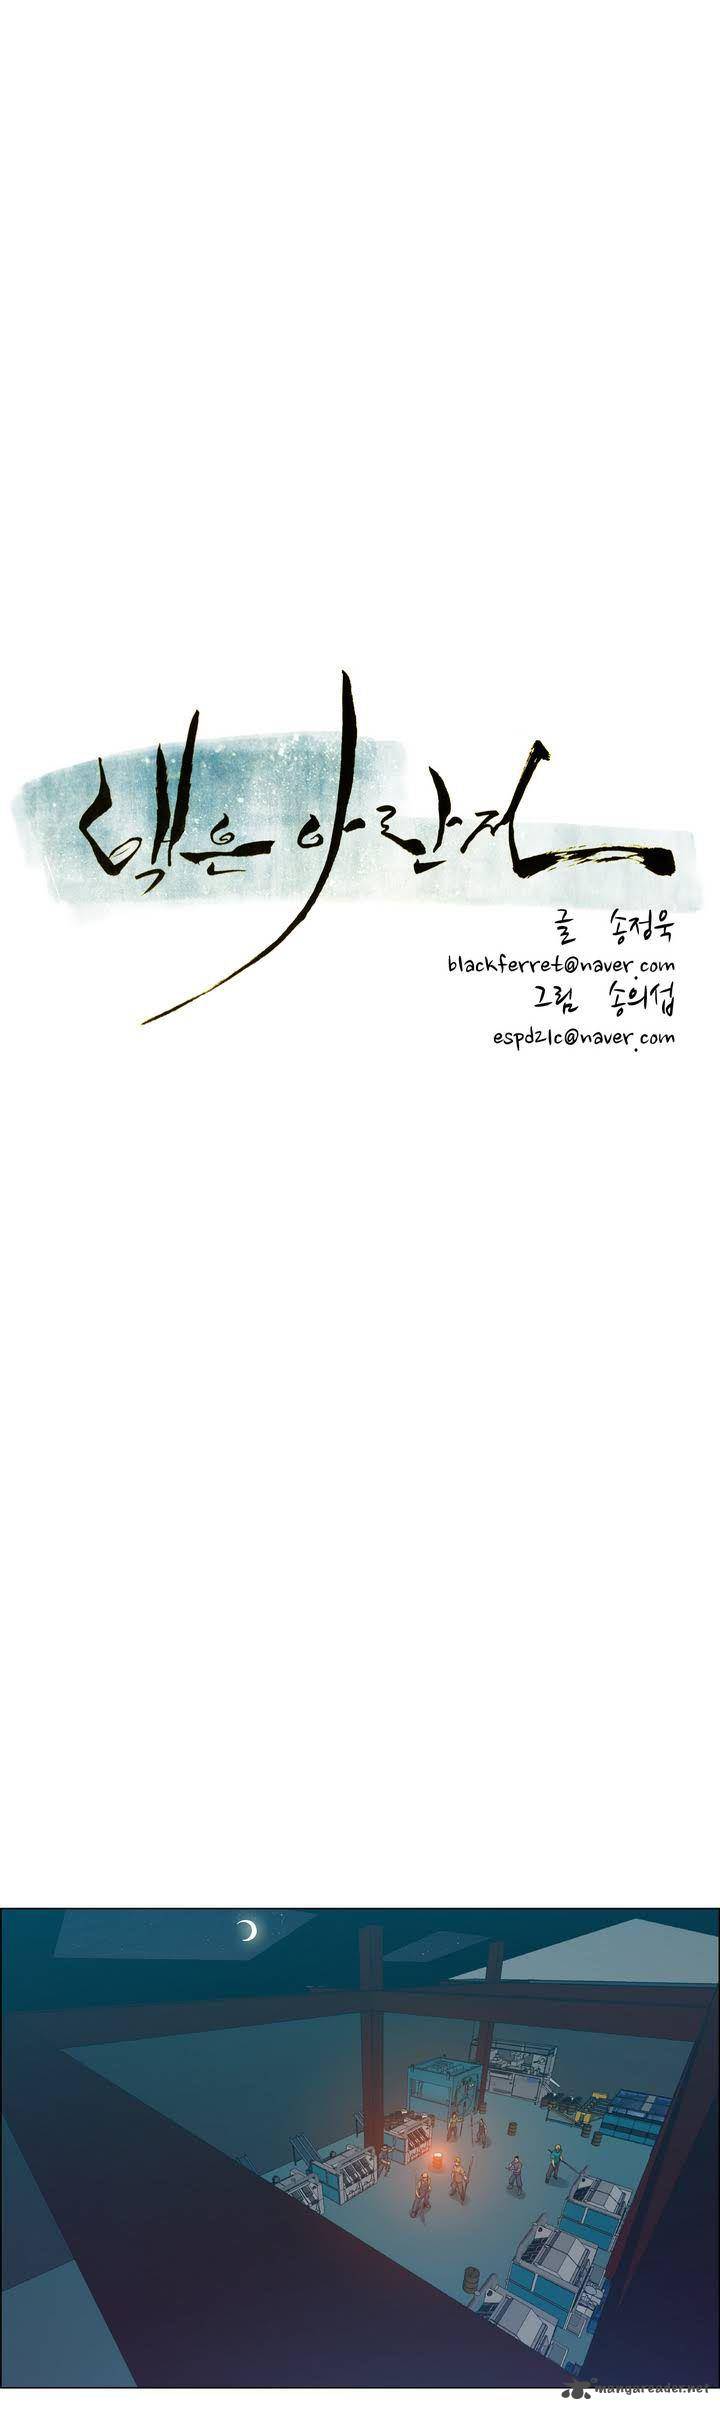 백은아란전
글 송정욱
blackferret@naver.com
그림 송의섭
espd21c@naver.com
mangareader.net